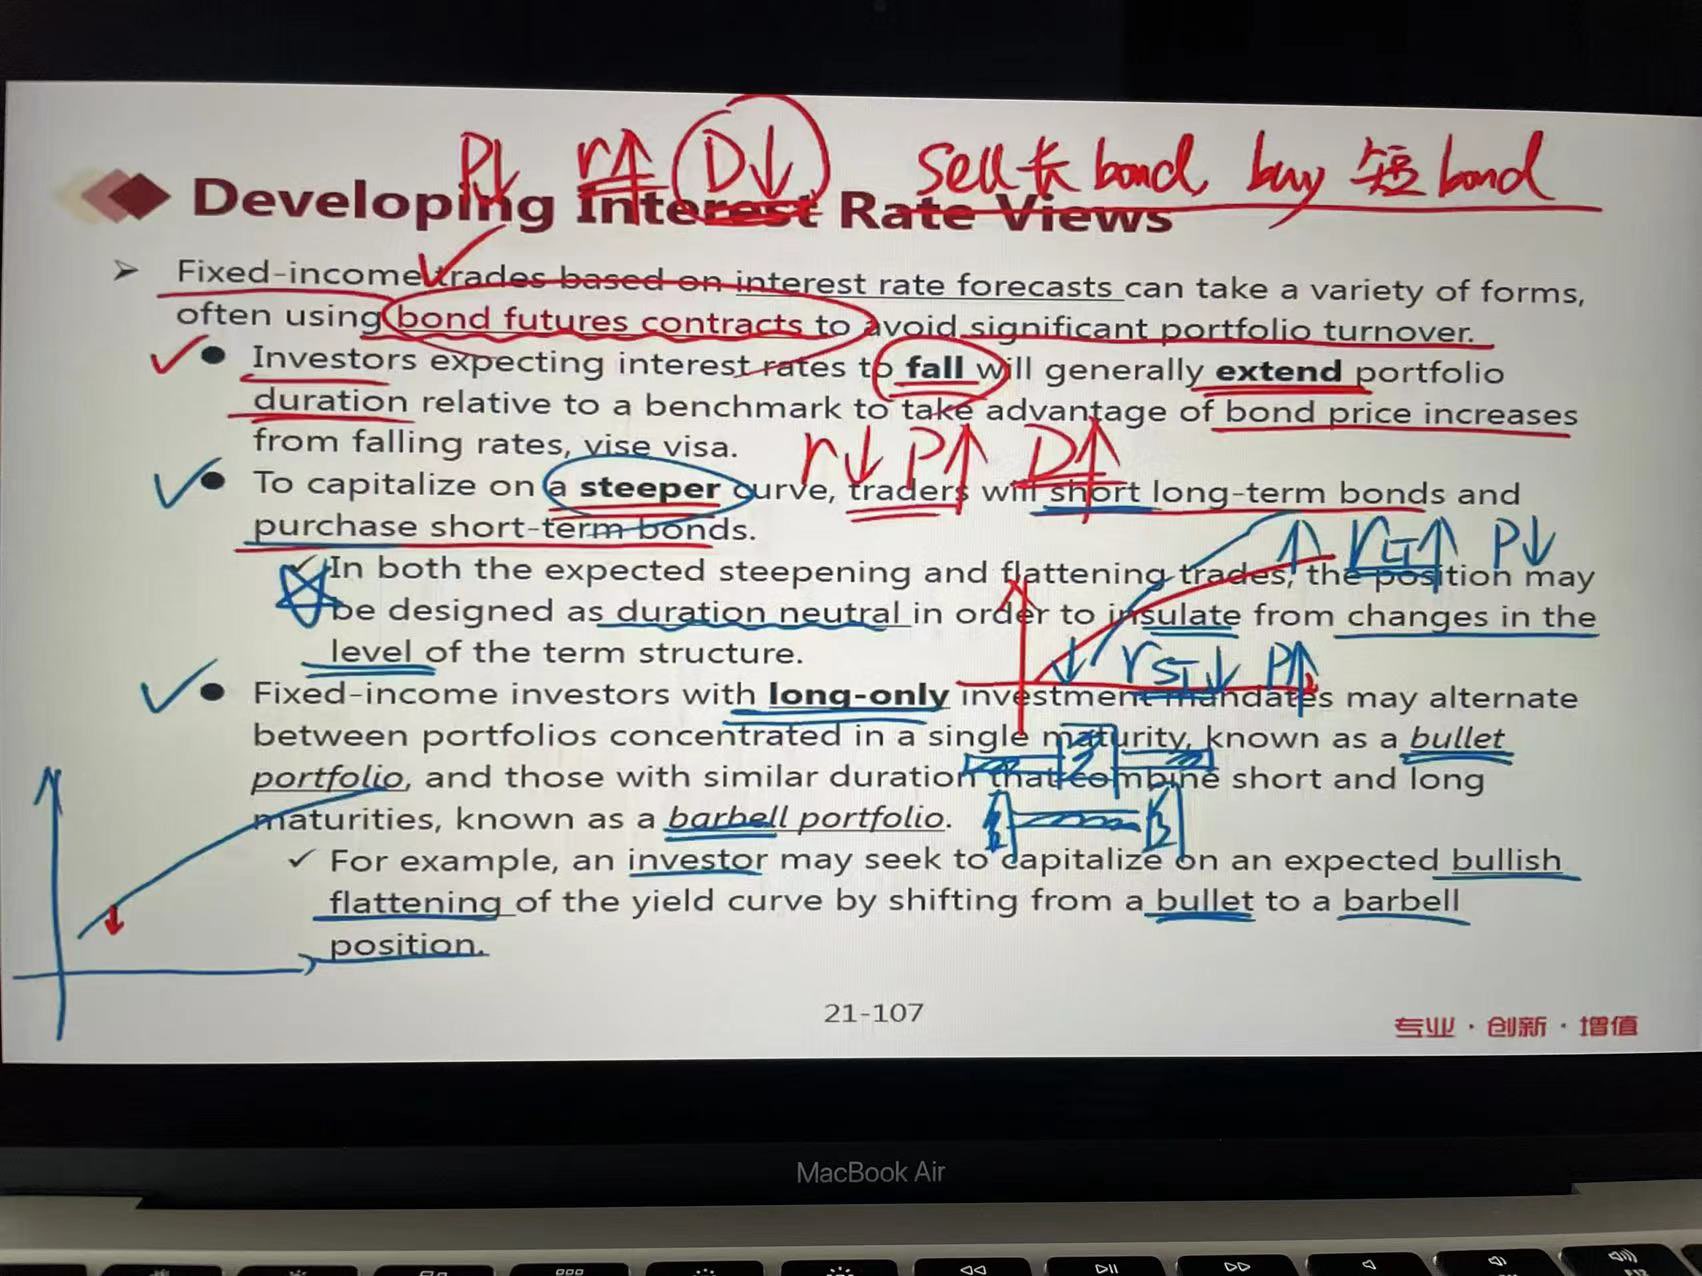 P↓ r↑ D↓ sell 长 bond, buy 短 bond
Developing Interest Rate Views
➤ Fixed-income trades based on interest rate forecasts can take a variety of forms,
often using bond futures contracts to avoid significant portfolio turnover.
● Investors expecting interest rates to fall will generally extend portfolio
duration relative to a benchmark to take advantage of bond price increases
from falling rates, vise visa.
r↓ P↑ D↑
● To capitalize on a steeper curve, traders will short long-term bonds and
purchase short-term bonds.
↑ rLT↑ P↓
✓ In both the expected steepening and flattening trades, the position may
be designed as duration neutral in order to insulate from changes in the
level of the term structure.
↓ rST↓ P↑
● Fixed-income investors with long-only investment mandates may alternate
between portfolios concentrated in a single maturity, known as a bullet
portfolio, and those with similar duration that combine short and long
maturities, known as a barbell portfolio.
✓ For example, an investor may seek to capitalize on an expected bullish
flattening of the yield curve by shifting from a bullet to a barbell
position.
21-107
专业·创新·增值
MacBook Air